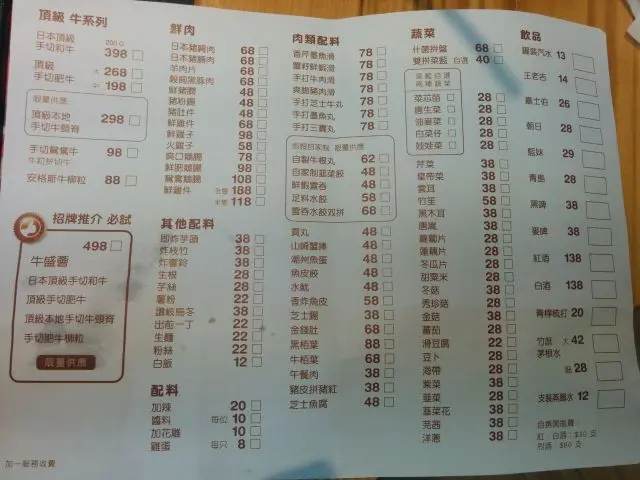 頂級 牛系列
日本頂級 200G
手切和牛 398
頂級 大 268
手切肥牛 中 198
限量供應
頂級本地
手切牛頸脊 298
手切鴛鴦牛 98
安格斯牛柳粒 88
招牌推介 必試
498
牛盛薈
日本頂級手切和牛
頂級手切肥牛
頂級本地手切牛頸脊
手切肥牛柳粒
限量供應
鮮肉
日本豬腩肉 68
日本豬腩肉 68
羊肉片 68
穀飼黑豚肉 68
鮮豬膶 48
豬粉腸 48
豬肚件 48
鮮雞件 68
鮮雞子 98
火雞子 58
爽口鵝腸 78
鮮肥鵝腸 98
鴛鴦鵝腸 108
鮮雞件 全隻 188
半隻 118
其他配料
即炸芋頭 38
炸枝竹 38
炸響鈴 38
生根 28
芋絲 28
薯粉 22
讚岐烏冬 38
出前一丁 22
生麵 22
粉絲 22
白飯 12
配料
加辣 20
醬料 每位 10
加花雕 10
雞蛋 每只 8
肉類配料
香芹墨魚滑 78
蟹籽鮮蝦滑 78
手打牛肉滑 78
爽脆豬肉滑 78
手打芝士牛丸 78
手打墨魚丸 78
手打三寶丸 78
限量供應
自製牛根丸 62
自家制韮菜餃 48
鮮蝦雲吞 48
足料水餃 58
雲吞水餃双拼 68
貢丸 48
山崎蟹捧 48
潮州魚蛋 48
魚皮餃 48
水魷 48
香炸魚皮 58
芝士腸 38
金錢肚 68
黑栢葉 88
牛栢葉 68
午餐肉 38
豬皮拼豬紅 38
芝士魚腐 48
蔬菜
什菌拼盤 68
雙拼菜籃 自選 40
菜籃自選
兩種蔬菜
菜芯苗 28
唐生菜 28
油麥菜 28
白菜仔 28
娃娃菜 28
芹菜 38
皇帝菜 38
雲耳 38
竹笙 58
黑木耳 38
唐蒿 38
蘿蔔片 28
蓮藕片 28
冬瓜片 28
甜粟米 28
冬菇 38
秀珍菇 28
金菇 38
蕃茄 28
滑豆腐 22
豆卜 28
海帶 28
紫菜 38
韮菜 28
韮菜花 38
芫茜 38
洋蔥 38
飲品
罐裝汽水 13
王老吉 14
嘉士伯 26
朝日 28
藍妹 29
青島 28
黑啤 38
麥啤 38
紅酒 138
白酒 138
青檸梳打 20
竹蔗 大 42
茅根水
細 28
支裝蒸餾水 12
自携開瓶費：
紅．白酒：$30 支
烈酒：$80 支
加一服務收費